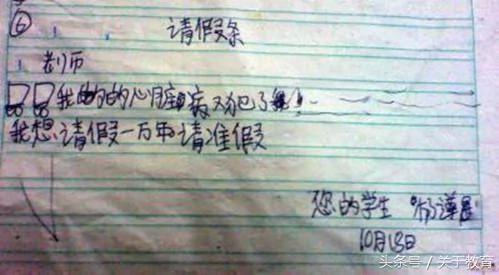 ⑥ 请假条
老师
我的的心脏病又犯了
我想请假一万年请准假
您的学生 杨
10月18日
头条号 / 关于教育